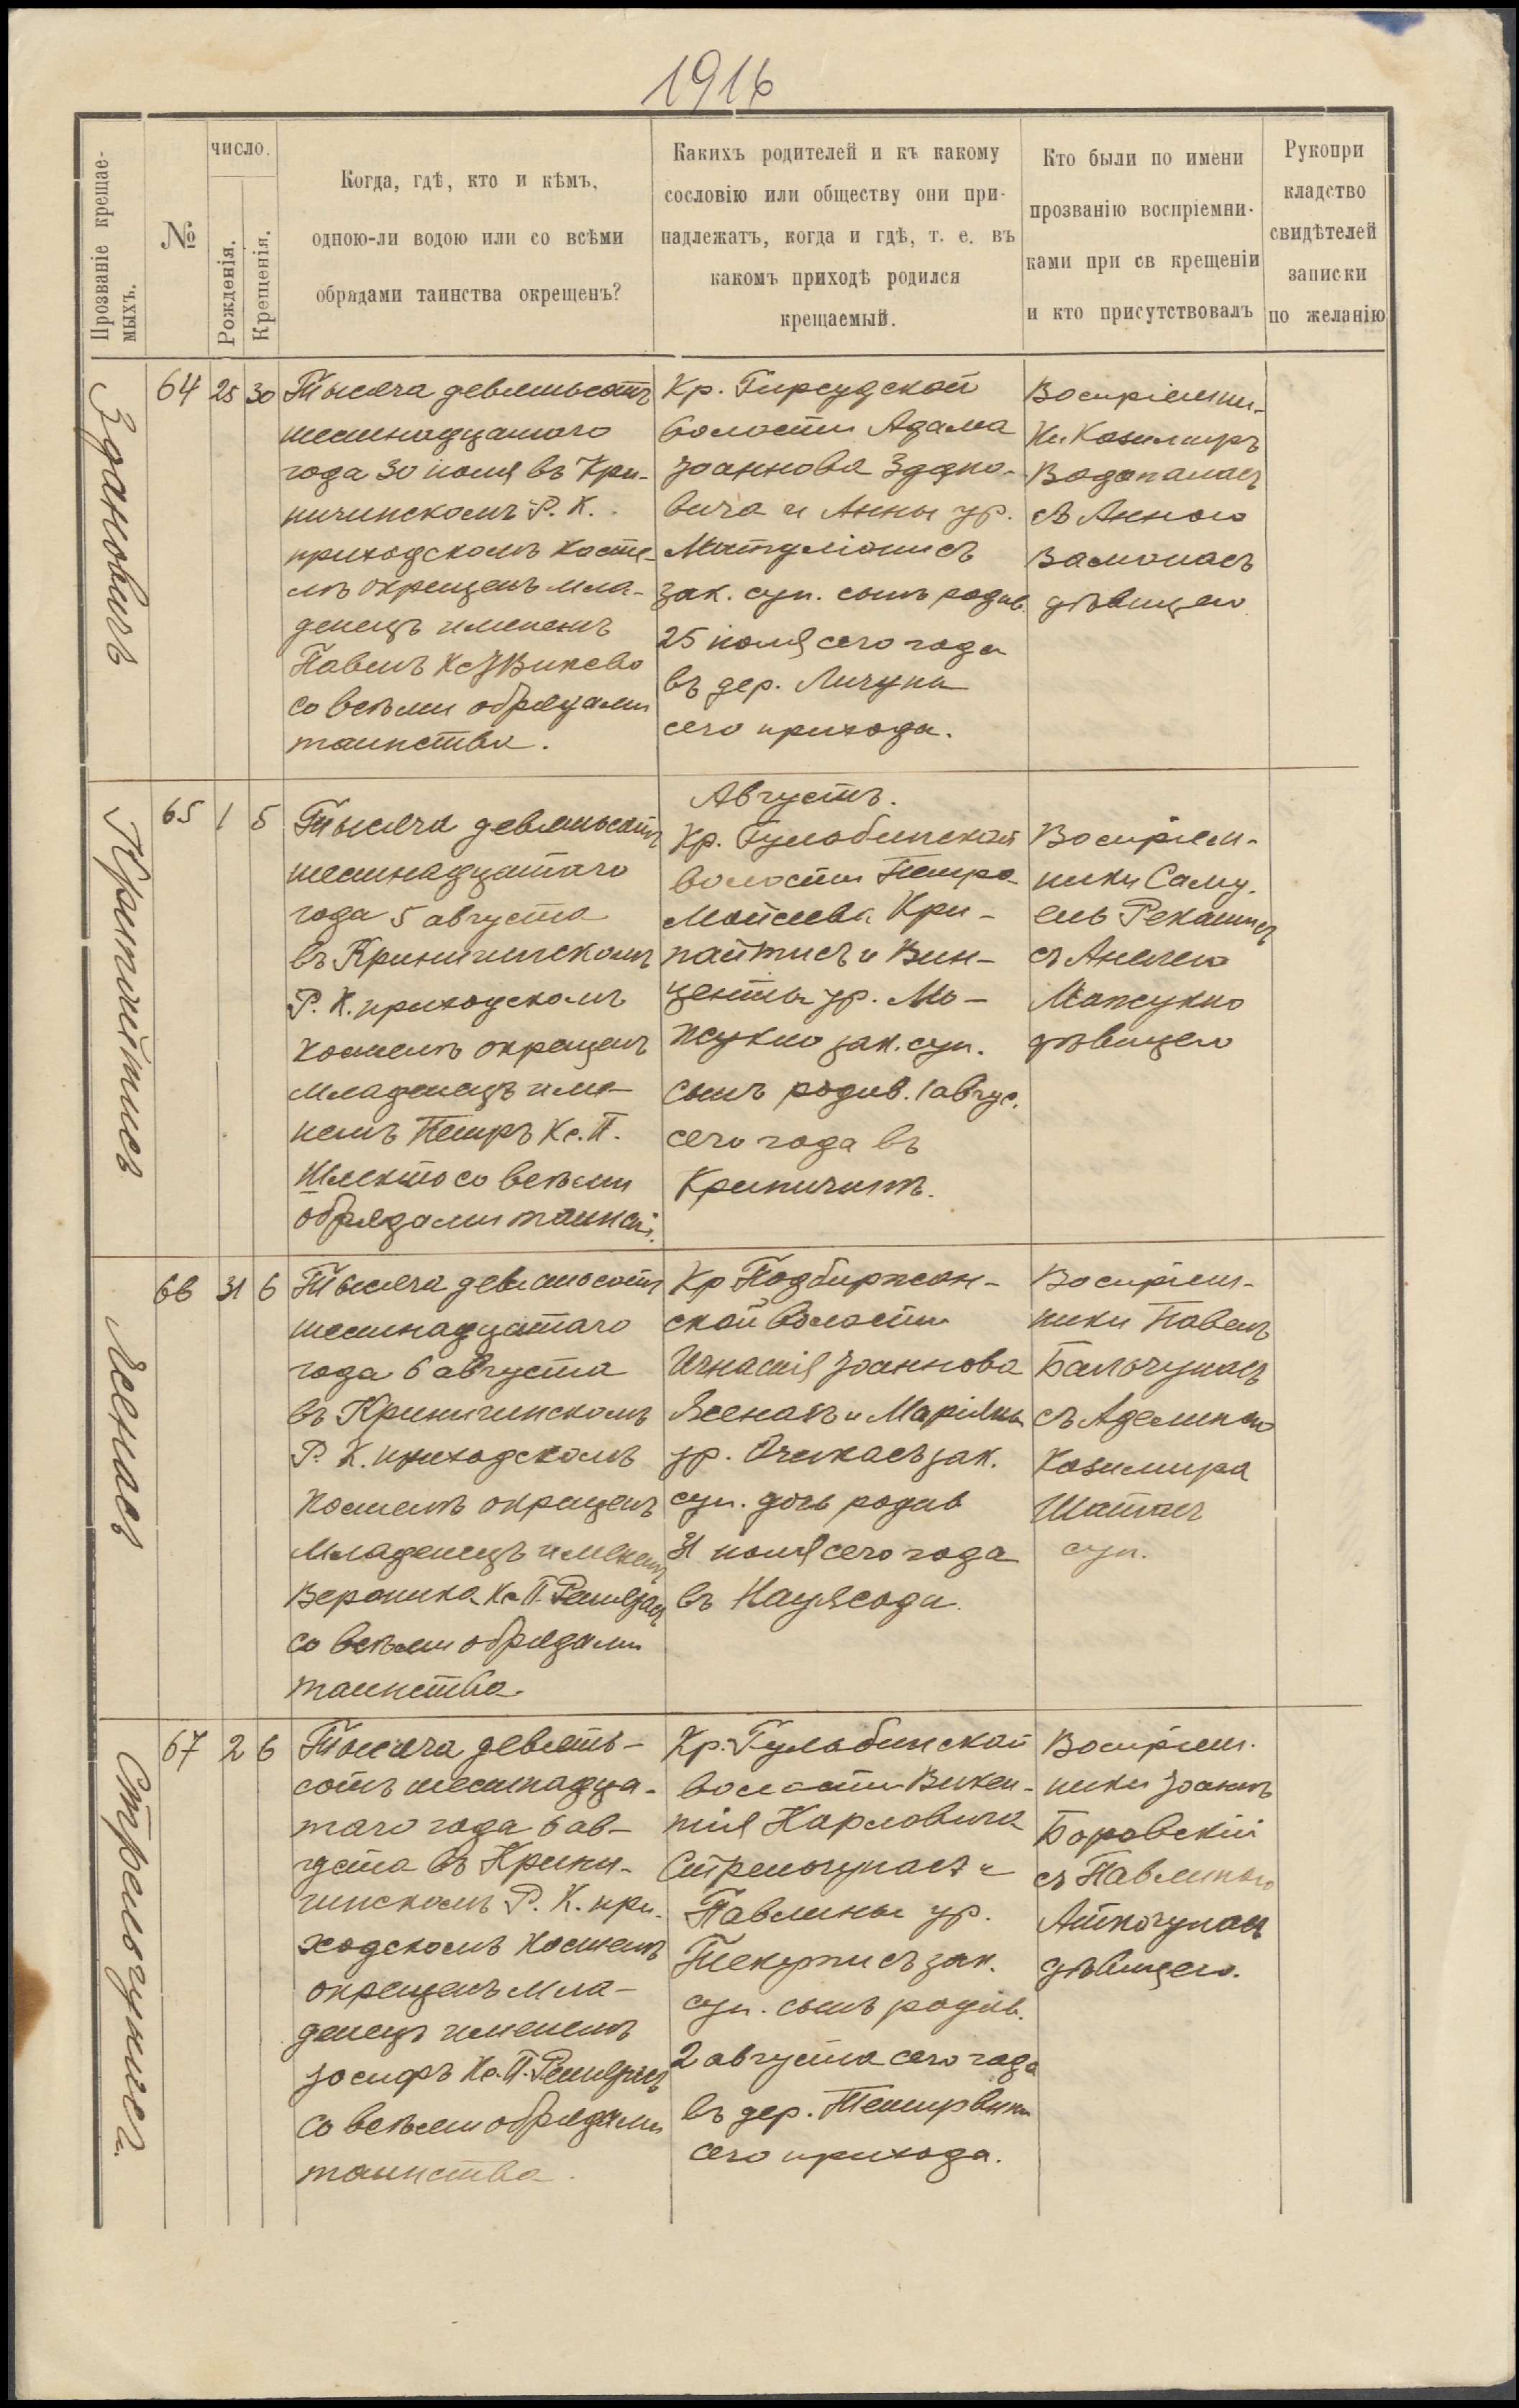 1916
Прозваніе крещае-
мыхъ.
№
число.
Рожденія.
Крещенія.
Когда, гдѣ, кто и кѣмъ,
одною-ли водою или со всѣми
обрядами таинства окрещенъ?
Какихъ родителей и къ какому
сословію или обществу они при-
надлежатъ, когда и гдѣ, т. е. въ
какомъ приходѣ родился
крещаемый.
Кто были по имени
прозванію воспріемни-
ками при св крещеніи
и кто присутствовалъ
Рукопри
кладство
свидѣтелей
записки
по желанію
Здановичъ
64 25 30
Тысяча девятьсотъ
шестнадцатаго
года 30 іюля въ Кри-
ничинскомъ Р. К.
приходскомъ косте-
лѣ окрещенъ мла-
денецъ именемъ
Павелъ
со всѣми обрядами
таинства.
Кр. Гирсудской
волости Адама
Іоаннова Здано-
вича и Анны ур.
Матуліонисъ
зак. суп. сынъ родив.
25 іюля сего года
въ дер. Личуна
сего прихода.
Воспріемни-
ки Казимиръ
Водопаласъ
съ Анною
Вамонасъ
дѣвицею
Крапайтисъ
65 1 5
Тысяча девятьсотъ
шестнадцатаго
года 5 августа
въ Криничинскомъ
Р. К. приходскомъ
костелѣ окрещенъ
младенецъ име-
немъ Петръ Кс. П.
со всѣми
обрядами таинст.
Августъ.
Кр. Гулобинской
волости Петра
Моисеева Кри-
пайтисъ и Вин-
центы ур. Ма-
жукно зак. суп.
сынъ родив. 1 авгус.
сего года въ
Криничинѣ.
Воспріем-
ники Саму-
елъ Рекашисъ
съ Анелею
Мажукно
дѣвицею
Ясенасъ
66 31 6
Тысяча девятьсотъ
шестнадцатаго
года 6 августа
въ Криничинскомъ
Р. К. приходскомъ
костелѣ окрещенъ
младенецъ именемъ
Вероника Кс. П.
со всѣми обрядами
таинства.
Кр Подбиржан-
ской волости
Игнатія Іоаннова
Ясенасъ и Маріяны
ур. Очикасъ зак.
суп. дочь родив
31 іюля сего года
въ Науясоди.
Воспріем-
ники Павелъ
Балочунасъ
съ Аделиною
Казимира
Шатасъ
суп.
Стрельчунасъ.
67 2 6
Тысяча девять-
сотъ шестнадца-
таго года 6 ав-
густа въ Крини-
чинскомъ Р. К. при-
ходскомъ костелѣ
окрещенъ мла-
денецъ именемъ
Іосифъ Кс. П.
со всѣми обрядами
таинства.
Кр. Гулобинской
волости Викен-
тія Карловича
Стрельчунасъ и
Павлины ур.
Текутисъ зак.
суп. сынъ родив.
2 августа сего года
въ дер.
сего прихода.
Воспріем-
ники Іоаннъ
Боровскій
съ Павлиною
Аткочунасъ
дѣвицею.